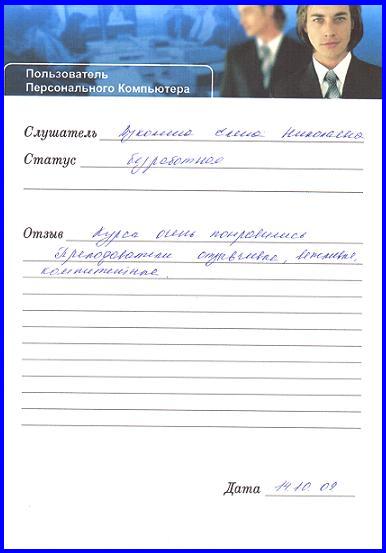 Пользователь
Персонального Компьютера
Слушатель Елена Николаевна
Статус безработная
Отзыв Курсы очень понравились
Преподаватели отзывчивые, вежливые,
компитентные.
Дата 14.10.09